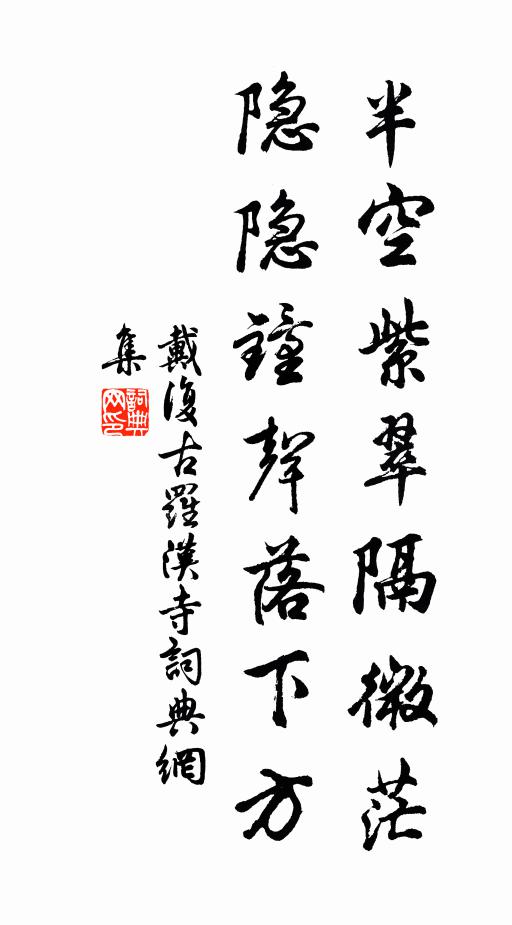 半空紫翠隔微茫
隐隐鐘聲落下方
戴復古羅漢寺詞典網
集
詞典
网印